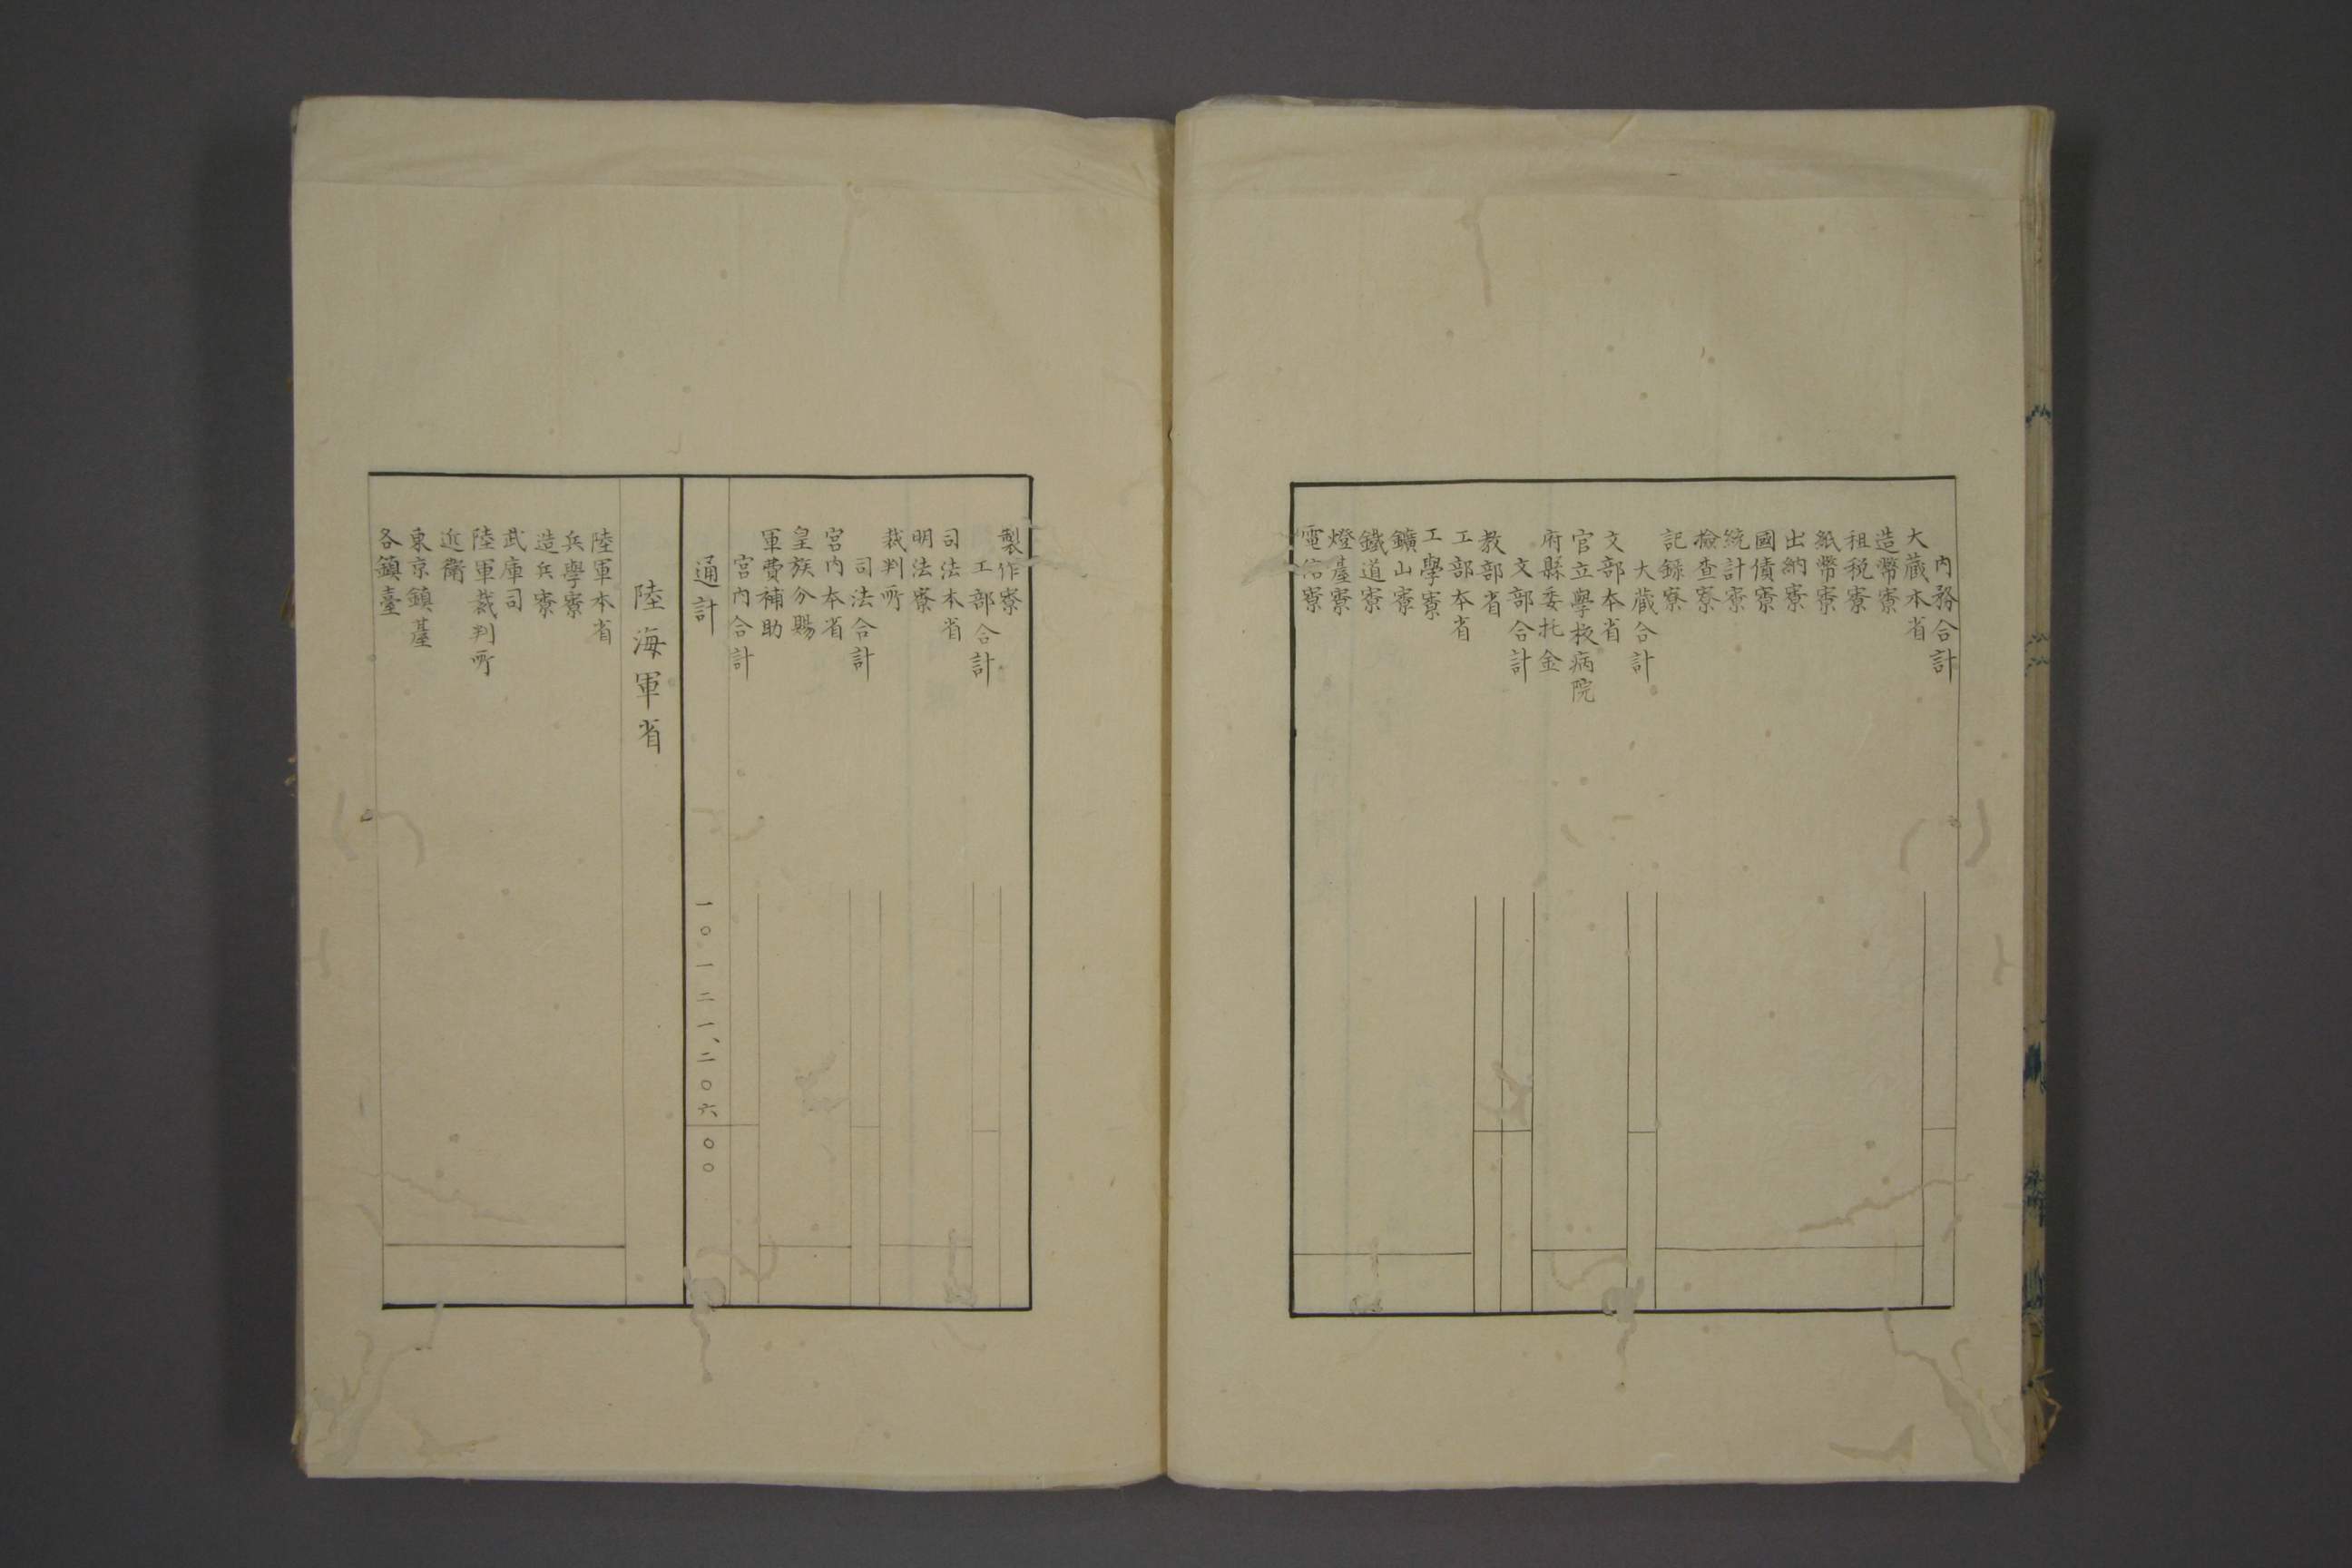 内務合計
大蔵本省
造幣寮
租税寮
紙幣寮
出納寮
國債寮
統計寮
撿査寮
記録寮
大蔵合計
文部本省
官立學校病院
府縣委托金
文部合計
教部省
工部本省
工學寮
鑛山寮
鐵道寮
燈臺寮
電信寮
製作寮
工部合計
司法本省
明法寮
裁判所
司法合計
宮内本省
皇族分賜
軍費補助
宮内合計
通計 一〇一二一、二〇六 〇〇
陸海軍省
陸軍本省
兵學寮
造兵寮
武庫司
陸軍裁判所
近衛
東京鎮臺
各鎮臺